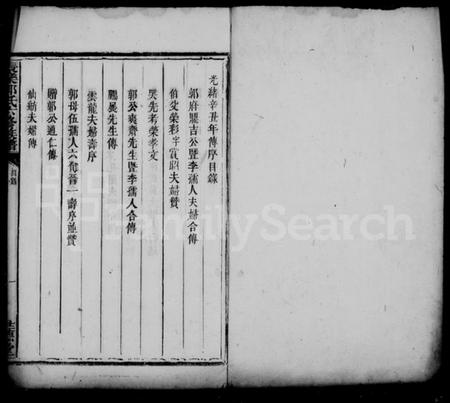 光緒辛丑年傳序目錄
郭府闇吉公暨李孺人夫婦合傳
伯父榮彩字賓昭夫婦贊
哭先考榮孝文
郭公爽齋先生暨李孺人合傳
鵬展先生傳
雲龍夫婦壽序
郭母伍孺人六旬晉一壽序並贊
贈郭公通仁傳
仙舫夫婦傳
目錄
一
FamilySearch